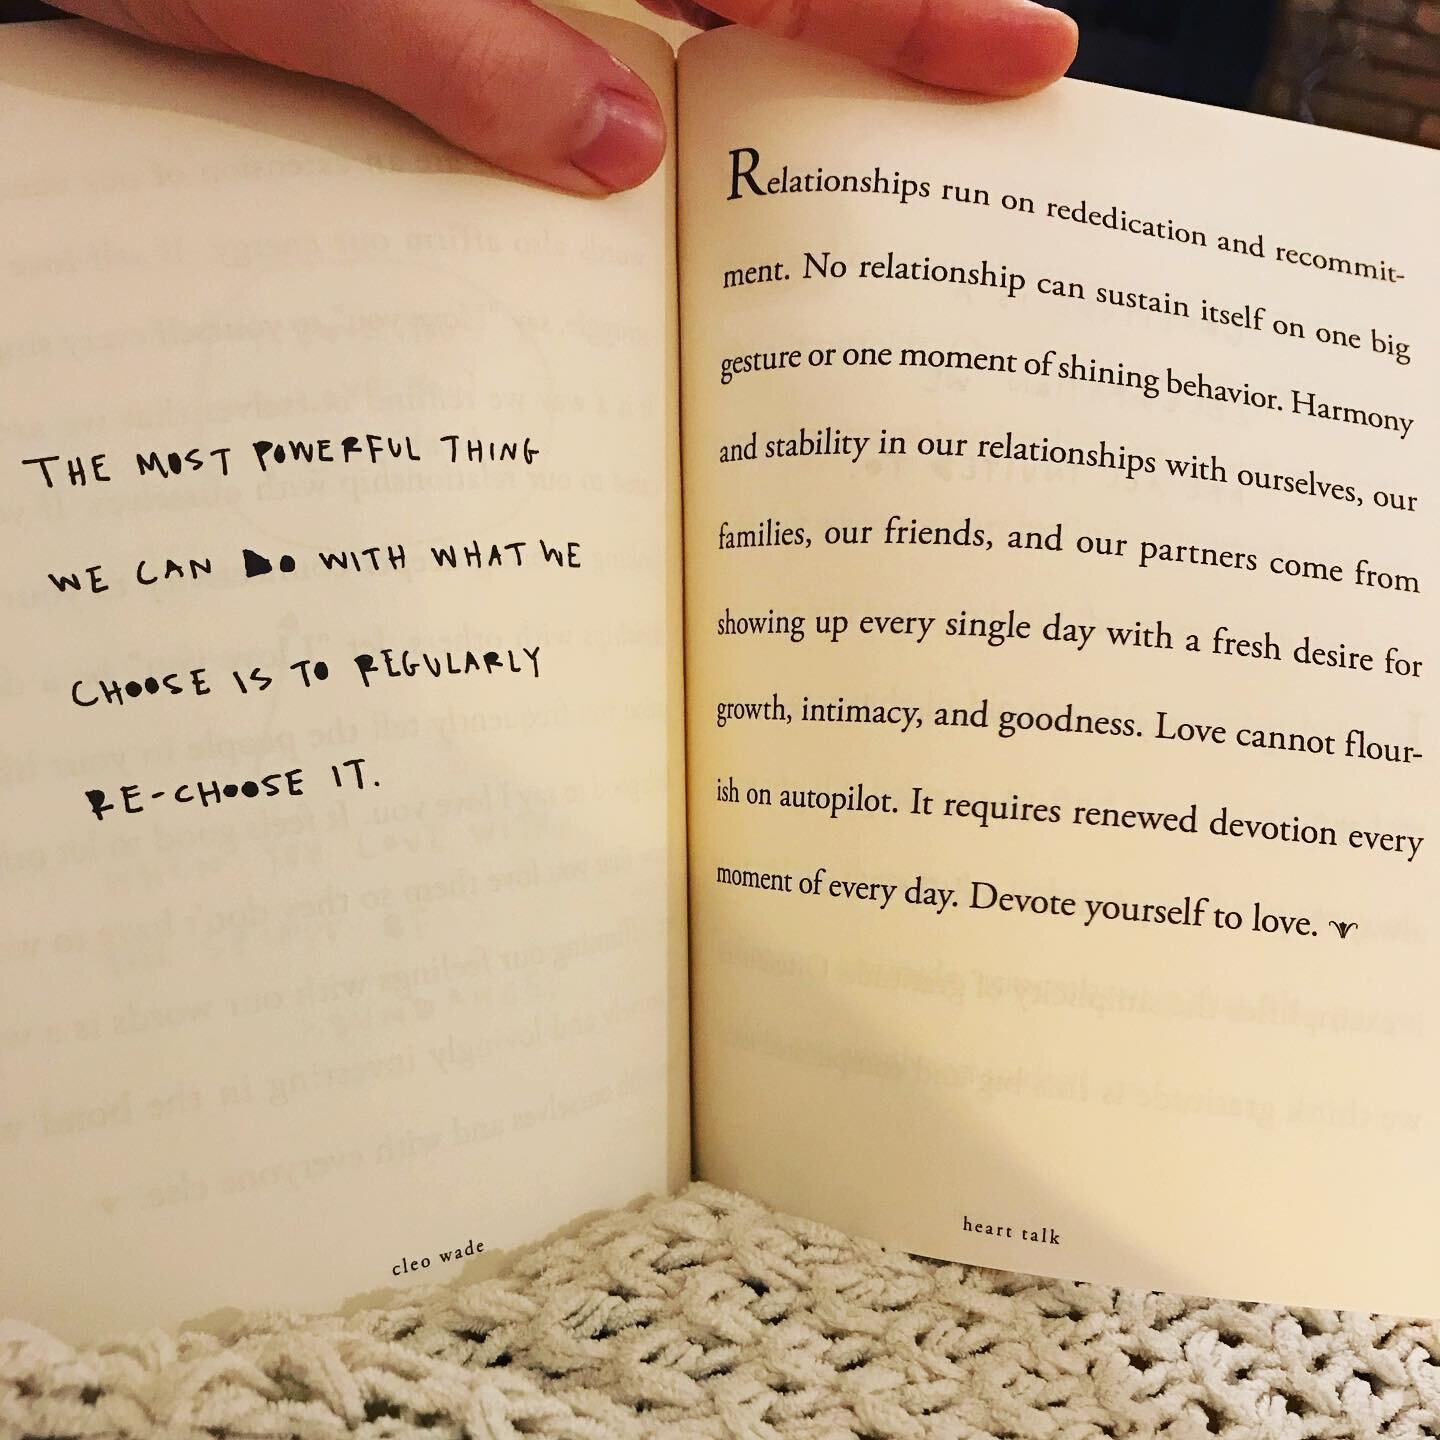 THE MOST POWERFUL THING
WE CAN DO WITH WHAT WE
CHOOSE IS TO REGULARLY
RE-CHOOSE IT.
cleo wade
Relationships run on rededication and recommit-
ment. No relationship can sustain itself on one big
gesture or one moment of shining behavior. Harmony
and stability in our relationships with ourselves, our
families, our friends, and our partners come from
showing up every single day with a fresh desire for
growth, intimacy, and goodness. Love cannot flour-
ish on autopilot. It requires renewed devotion every
moment of every day. Devote yourself to love.
heart talk